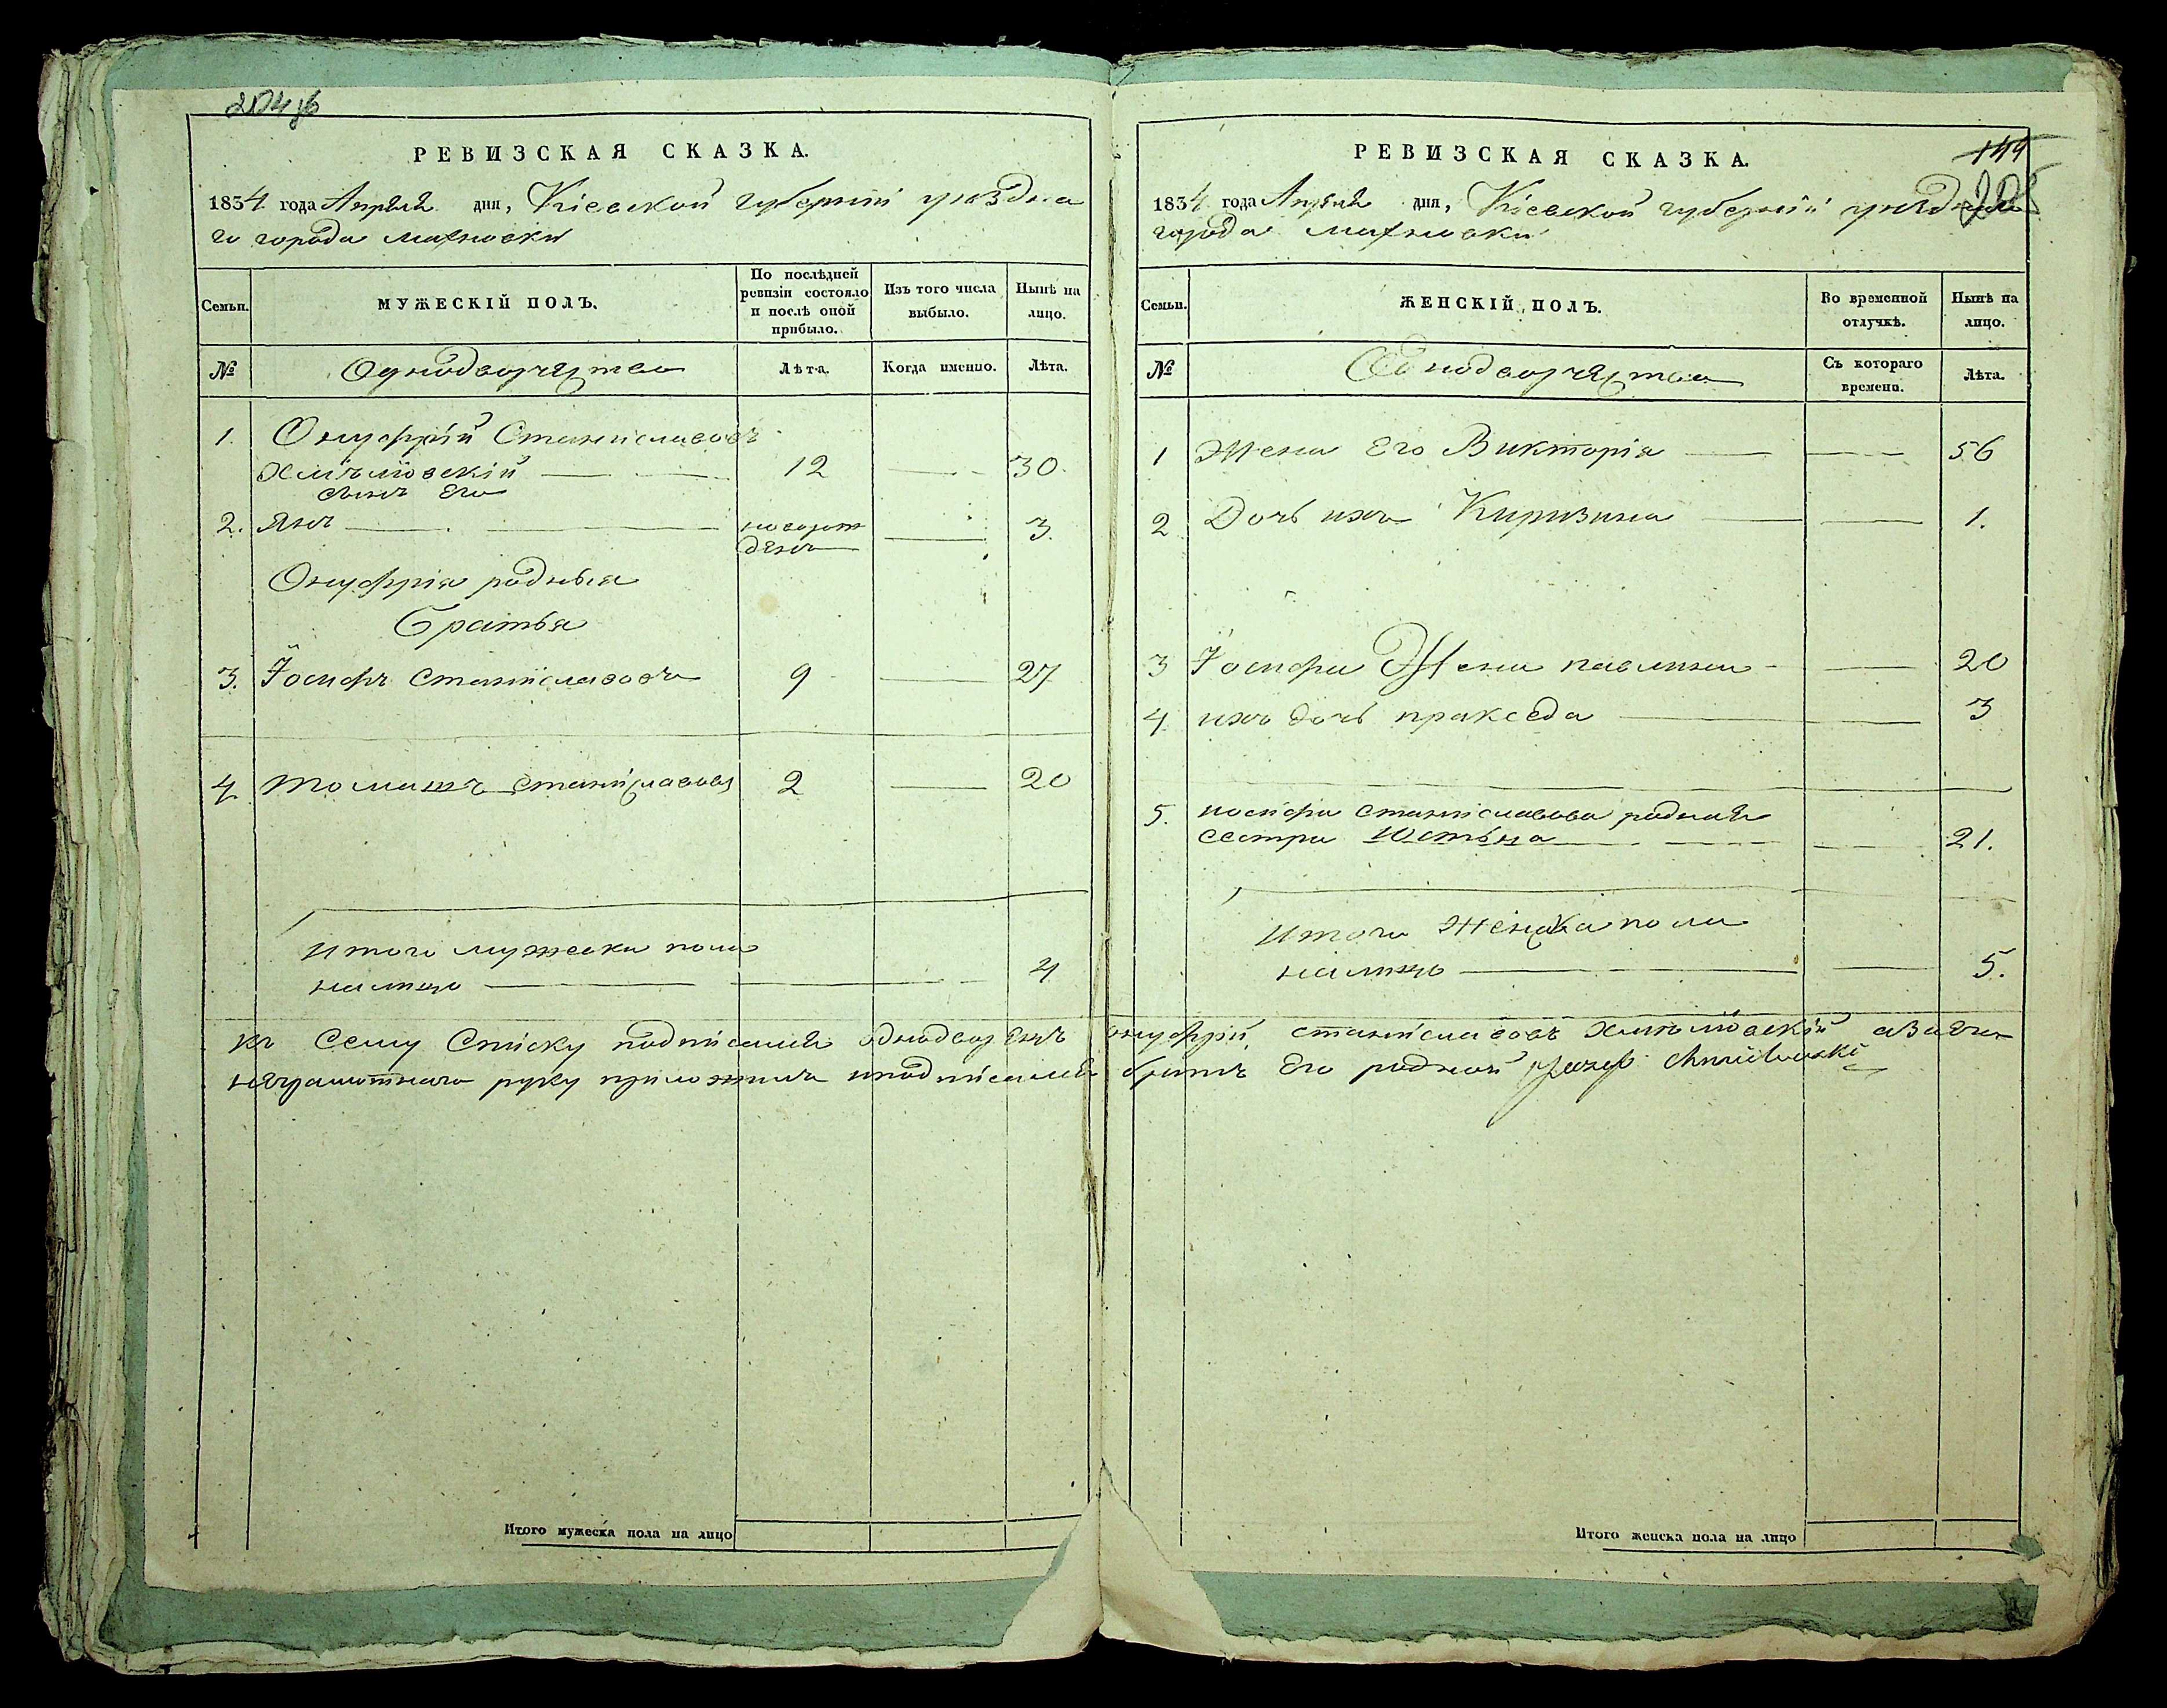 204
РЕВИЗСКАЯ СКАЗКА.
1834 года Апреля дня, Кіевской губерніи уезdна
го города Махновки
Семьи.
МУЖЕСКІЙ ПОЛЪ.
По послѣдней ревизіи состояло и послѣ оной прибыло.
Изъ того числа выбыло.
Нынѣ на лицо.
№
Однодворчества
Лѣта.
Когда именно.
Лѣта.
1. Онуфрій Станиславовъ
Хмѣлювскій 12 30.
сынъ Его
2. Янъ новорож 3.
денъ
Онуфрія родныя
Братья
3. Іосифъ Станиславовъ 9 27
4 Томашъ Станиславовъ 2 20
Итого мужеска пола
налицо 4
РЕВИЗСКАЯ СКАЗКА.
199
1834 года Апреля дня, Кіевской губерніи уездного
города Махновки
Семьи.
ЖЕНСКІЙ ПОЛЪ.
Во временной отлучкѣ.
Нынѣ на лицо.
№
Однодворчества
Съ котораго времени.
Лѣта.
1 Жена Его Викторія 56
2 Дочь ихъ 1.
3 Іосифа Жена павлина 20
4 ихъ дочь пракседа 3
5. иосифа Станиславова родная
сестра Юстына 21.
Итого Женска пола
налицо 5.
къ Сему Списку подписался однодворецъ онуфрій станиславовъ Хмѣлювскій аза его
неграмотнаго руку приложилъ иподписался братъ Его родной Jozef Chmielowski
Итого мужеска пола на лицо
Итого женска пола на лицо